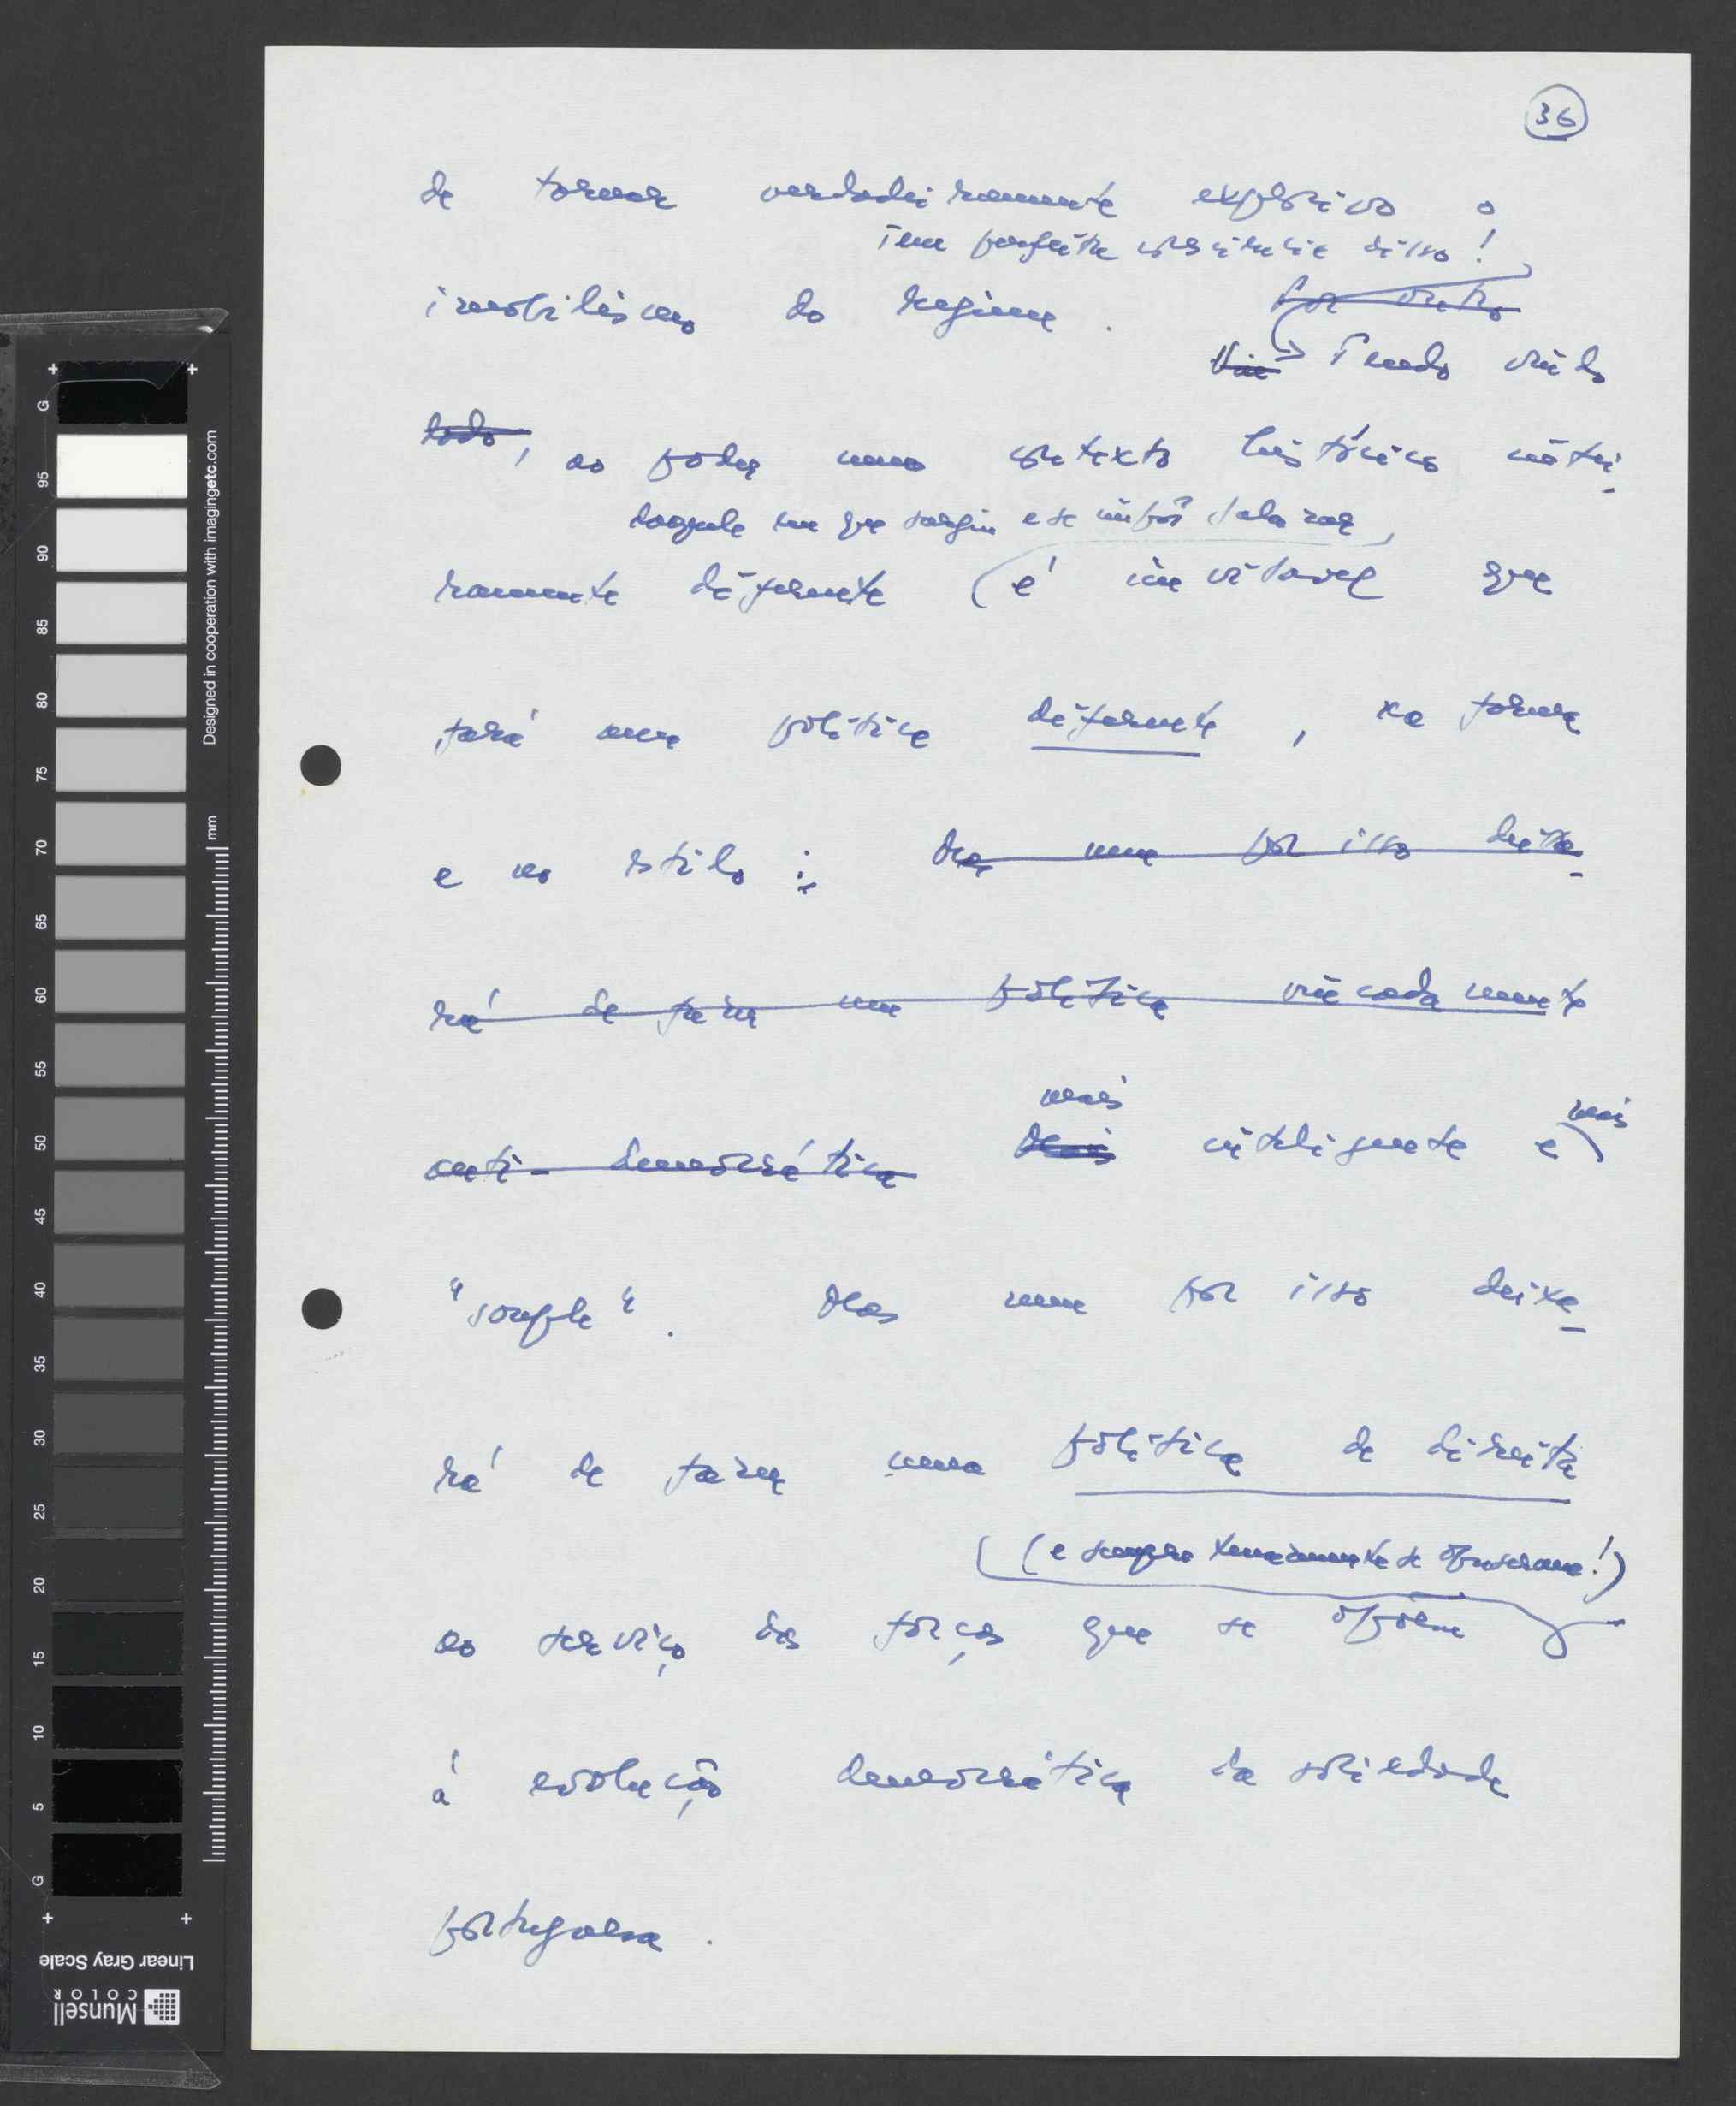 36
de tornar verdadeiramente explosivo o
Tem perfeita consciência disso!
imobilismo do regime. Por outro
Vin Tendo vindo
lado, ao poder num contexto histórico intei-
daquele em que surgiu e se impôs Salazar,
ramente diferente é inevitável que
fará uma política diferente, na forma
e no estilo: Mas nem por isso deixa-
rá de fazer uma política vincadamente
mais mais
anti-democrática Mais inteligente e
"souple". Mas nem por isso deixa-
rá de fazer uma política de direita
(e sempre tenazmente se opuseram!)
ao serviço das forças que se opõem
à evolução democrática da sociedade
portuguesa.
G
95
90
85
80
75
70
65
60
55
50
45
40
35
30
25
20
15
10
5
G
mm
Designed in cooperation with imagingetc.com
Linear Gray Scale
Munsell
COLOR